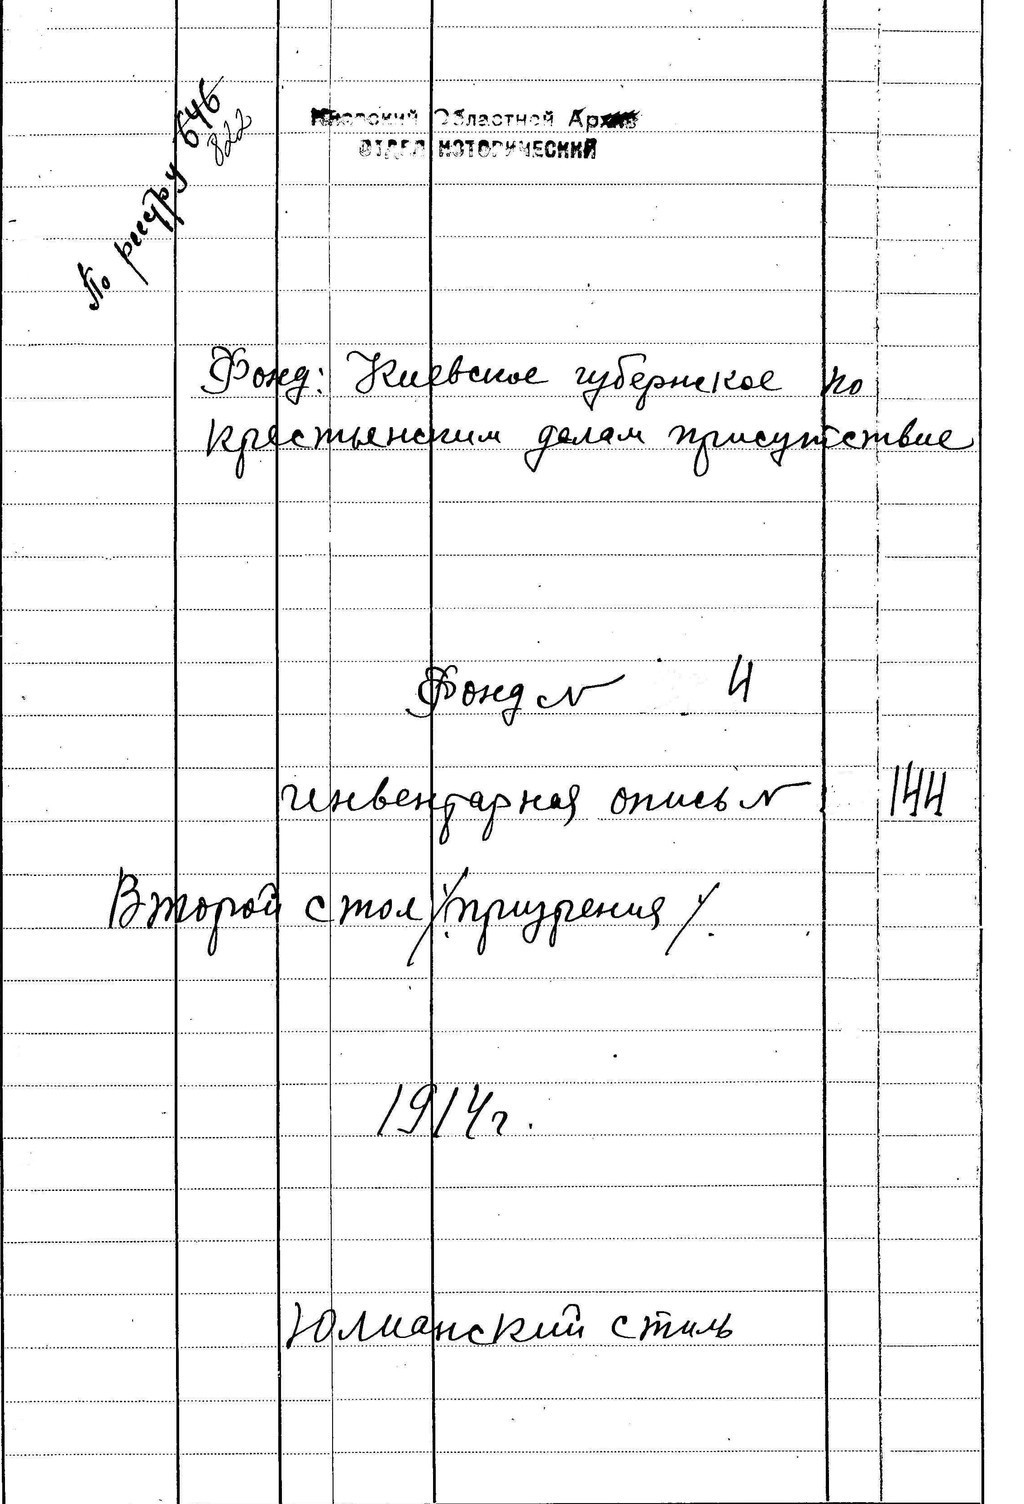 По реестру 646
822
Киевский Областной Архив
ОТДЕЛ ИСТОРИЧЕСКИЙ
Фонд: Киевское губернское по
крестьянским делам присутствие
Фонд № 4
инвентарная опись № 144
Второй стол /призрения/.
1914 г.
Юлианский стиль